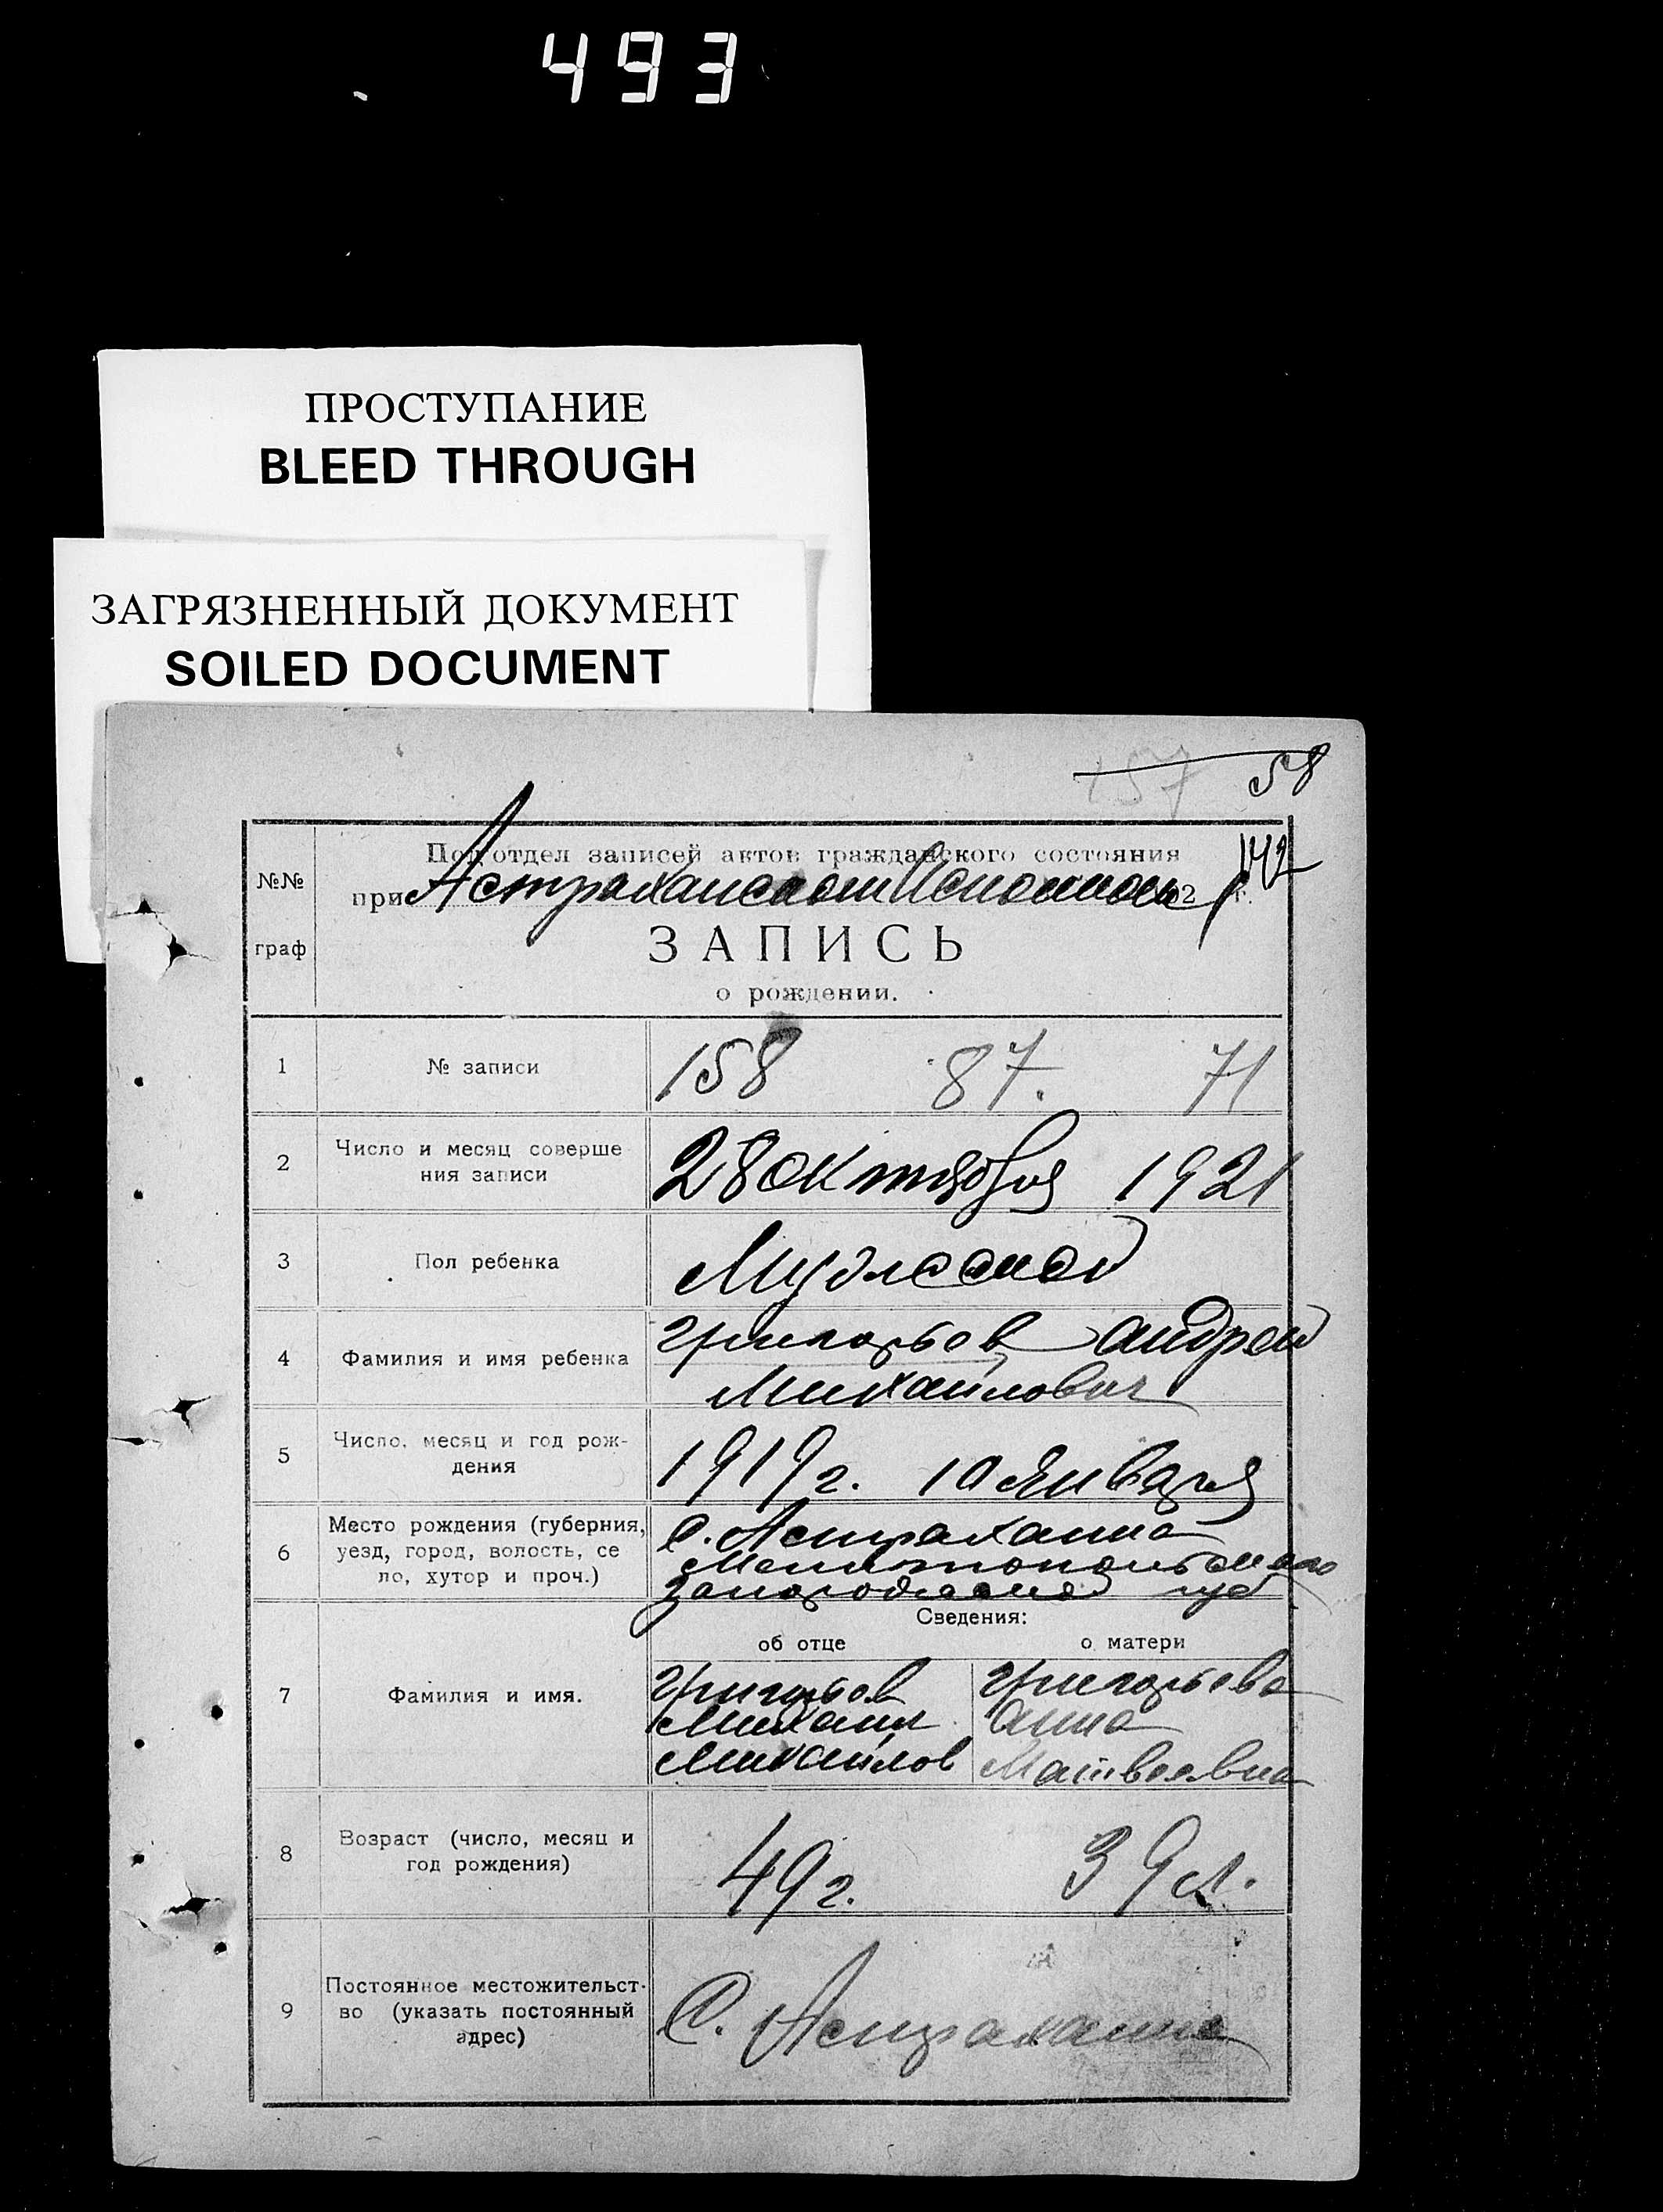 493
ПРОСТУПАНИЕ
BLEED THROUGH
ЗАГРЯЗНЕННЫЙ ДОКУМЕНТ
SOILED DOCUMENT
157 58
№№
граф
Под'отдел записей актов гражданского состояния
при Астраханском 192 1 г.
142
ЗАПИСЬ
о рождении.
1 № записи 158 87. 71
2 Число и месяц соверше
ния записи
28 октября 1921
3 Пол ребенка Мужской
4 Фамилия и имя ребенка
Григорьев Андрей
Михайлович
5 Число, месяц и год рож-
дения
1919 г. 10 Января
6 Место рождения (губерния,
уезд, город, волость, се
ло, хутор и проч.)
С. Астраханка
Мелитопольского
Запорожской губ
Сведения:
об отце о матери
7 Фамилия и имя.
Григорьев
Михаил
Михайлов
Григорьева
Анна
Матвеевна
8 Возраст (число, месяц и
год рождения)
49 г. 39 л.
9 Постоянное местожительст-
во (указать постоянный
адрес)
С. Астраханка